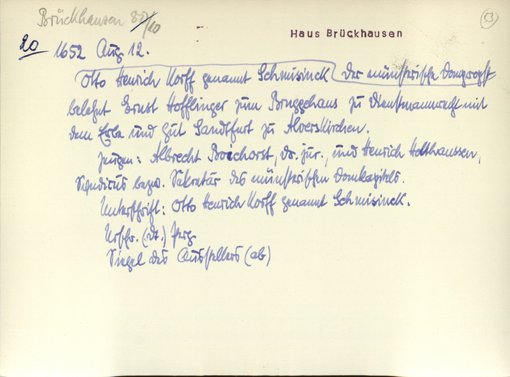 Brückhausen 85/20
53
Haus Brückhausen
20 1652 Aug 12.
Otto Henrich Korff genannt Schmisinck der münstrische Dompropst
belehnt Ernst Höfflinger zum Brüggehaus zu Dienstmannrecht mit
dem Erbe und Gut Sandtfurt zu Alverskirchen.
Zeugen: Albrecht Boichorst, Dr. jur., und Henrich Holthaussen,
Syndicus bezw. Sekretär des münstrischen Domkapitels.
Unterschrift: Otto Henrich Korff genannt Schmisinck.
Urschr. (dt.) Perg.
Siegel des Ausstellers (ab)